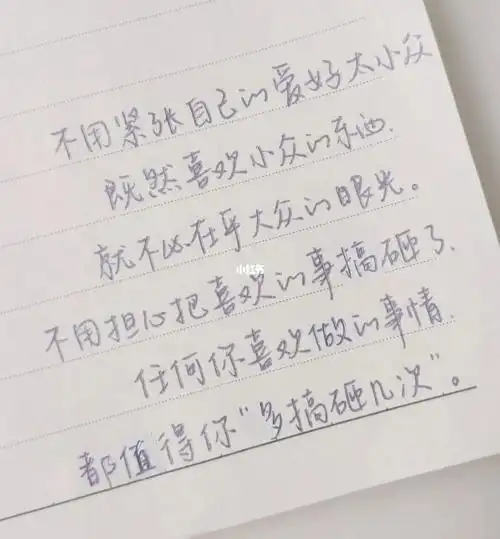 不用紧张自己的爱好太小众
既然喜欢小众的东西.
就不必在乎大众的眼光。
小红书
不用担心把喜欢的事搞砸了.
任何你喜欢做的事情.
都值得你“多搞砸几次”。